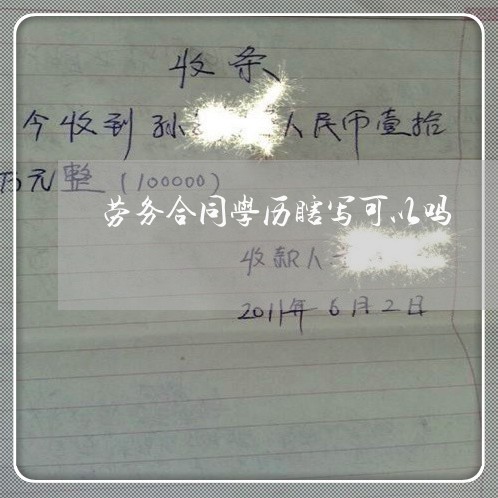 收条
今收到孙 人民币壹拾
万元整(100000)
劳务合同学历瞎写可以吗
收款人
2011年6月2日